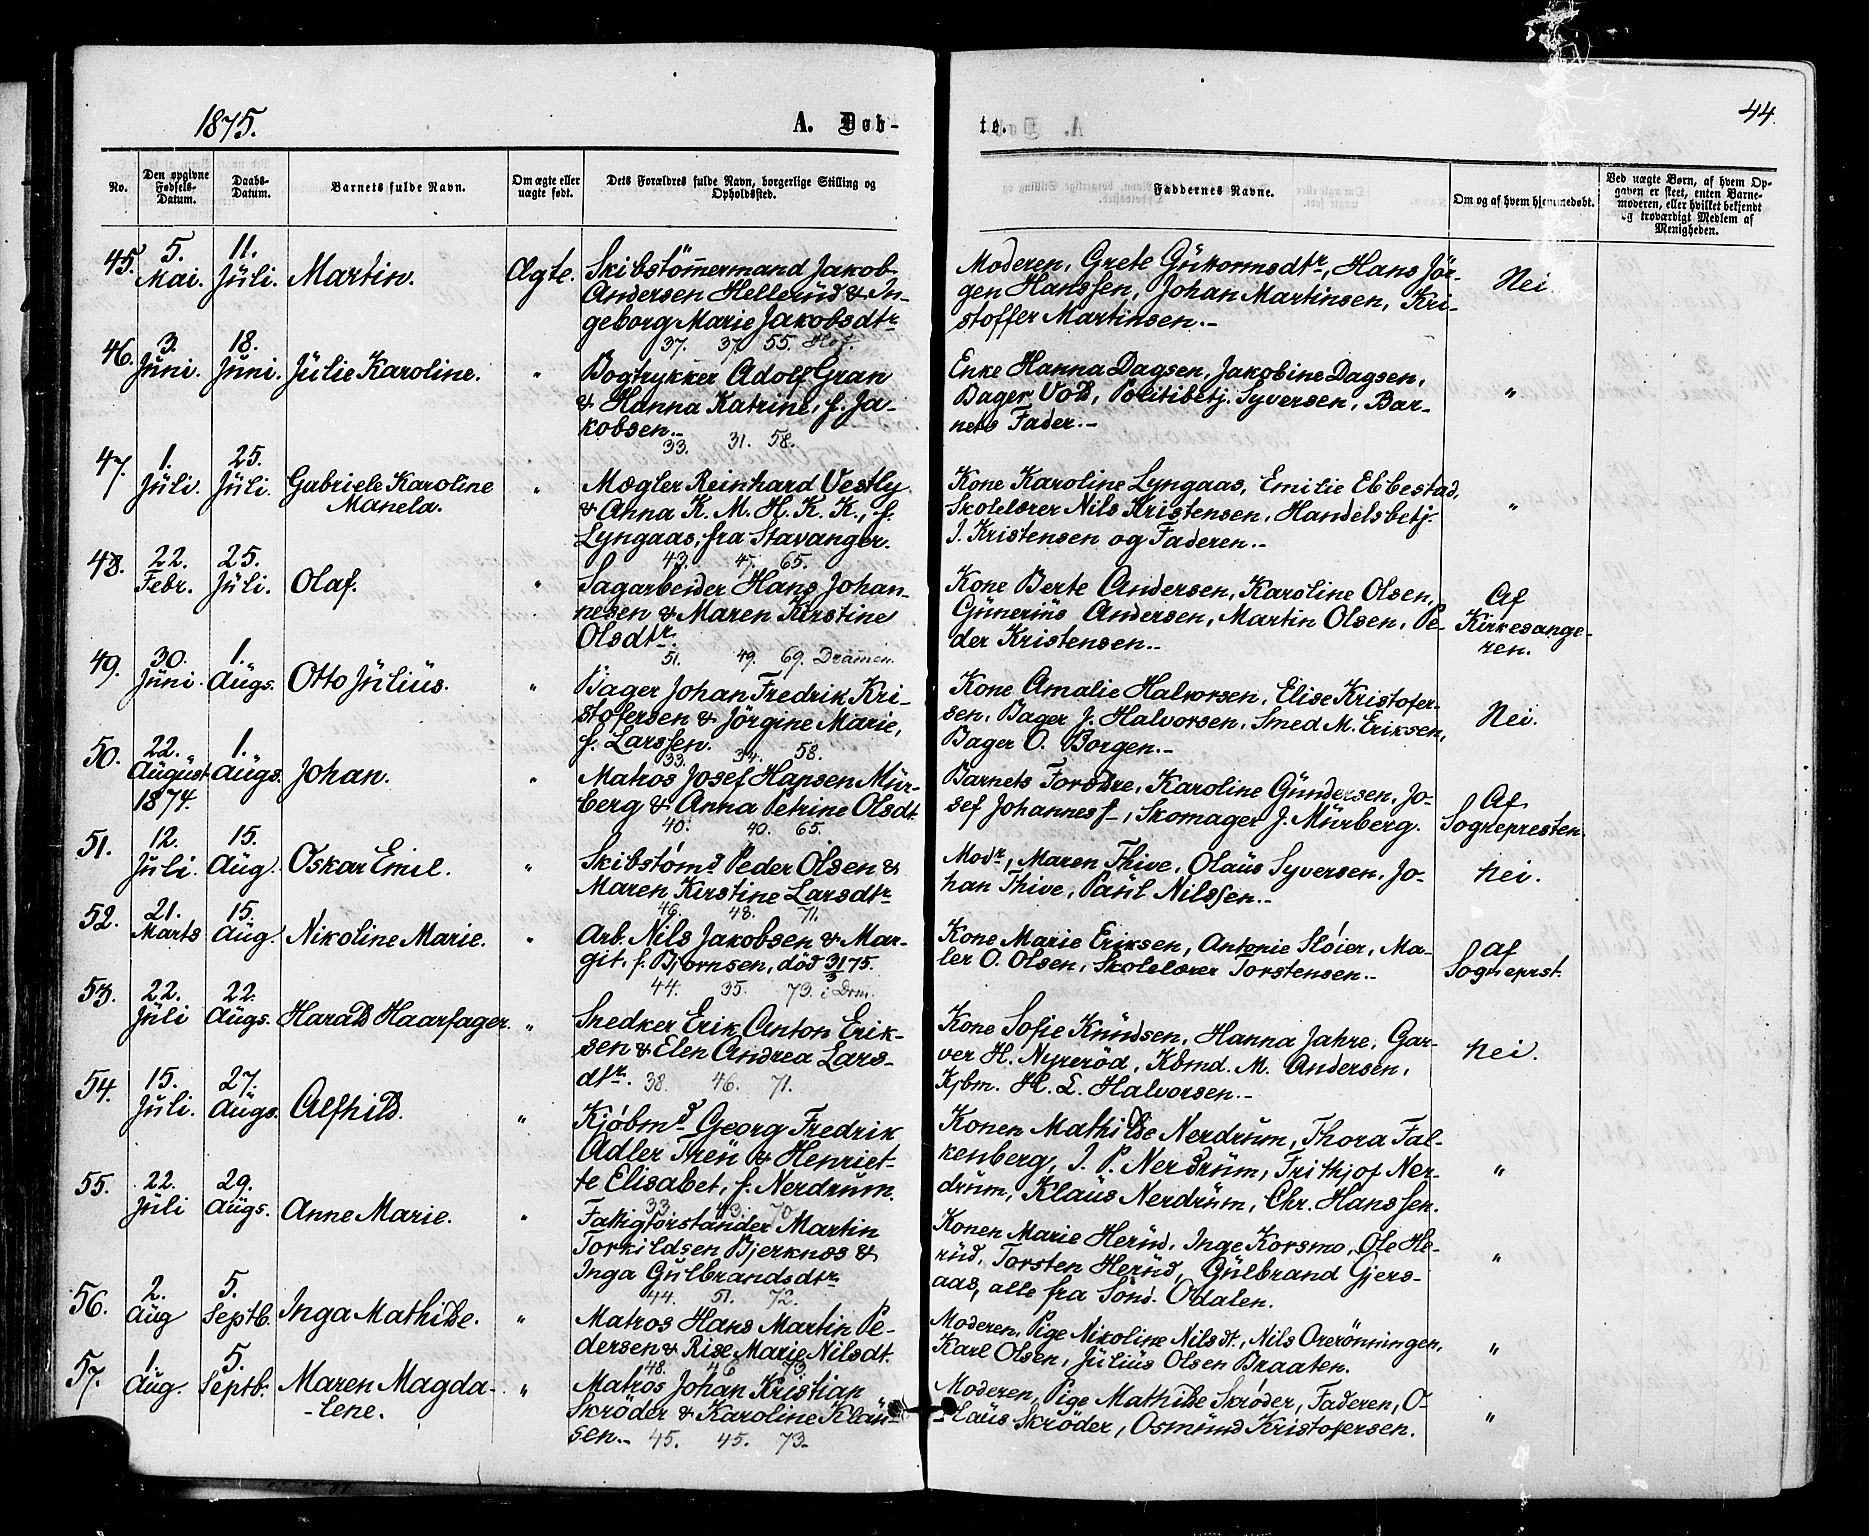 1875.
A. Døb-
te.
44.
No.
Den opgivne Fødsels-Datum.
Daabs-Datum.
Barnets fulde Navn.
Om ægte eller uægte født.
Dets Forældres fulde Navn, borgerlige Stilling og Opholdssted.
Faddernes Navne.
Om og af hvem hjemmedøbt.
Ved uægte Børn, af hvem Op-
gaven er skeet, enten Barne-
moderen, eller hvilket bekjendt
og troværdigt Medlem af
Menigheden.
45. 5. Mai. 11. Júli. Martin. Ægte.
Skibstömmermand Jakob
Andersen Hellerúd & In-
geborg Marie Jakobsdtr
37. 37. 55. Hof.
Moderen, Grete Gútormsdtr, Hans Jör-
gen Hanssen, Johan Martinsen, Kri-
stoffer Martinsen.-
Nei.
46. 3. Juni. 18. Juni. Júlie Karoline. "
Bogtrykker Adolf Gran
& Hanna Katrine, f. Ja-
kobsen.-
33. 31. 58.
Enke Hanna Dagsen, Jakobine Dagsen,
Bager Vold, Politibetj. Syversen, Bar-
nets Fader.-
"
47. 1. Júli. 25. Júli. Gabriele Karoline
Manela. "
Mægler Reinhard Vestly
& Anna K. M. H. K. K., f.
Lyngaas, fra Stavanger.
43. 47. 65.
Kone Karoline Lyngaas, Emilie Ebbestad,
Skolelærer Nils Kristensen, Handelsbetj.
J. Kristensen og Faderen.-
"
48. 22. Febr. 25. Júli. Olaf. "
Sagarbeider Hans Johan-
nesen & Maren Kirstine
Olsdtr.
51. 49. 69. Drammen.
Kone Berte Andersen, Karoline Olsen,
Gúneriús Andersen, Martin Olsen, Pe-
der Kristensen.-
Af
Kirkesange-
ren.
49. 30. Juni. 1. Aúgs. Otto Júliús. "
Bager Johan Fredrik Kri-
stofersen & Jörgine Marie,
f. Larssen.
33. 34. 58.
Kone Amalie Halvorsen, Elise Kristofer-
sen, Bager J. Halvorsen, Smed M. Eriksen,
Bager O. Borgen.-
Nei.
50. 22. Aúgúst 1874. 1. Aúgs. Johan. "
Matros Josef Hansen Múr-
berg & Anna Petrine Olsdt.
40. 40. 65.
Barnets Forældre, Karoline Gúndersen, Jo-
sef Johannesf-, Skomager J. Múrberg.
Af
Sognepresten.
51. 12. Juli. 15. Aug. Oskar Emil. "
Skibstømd Peder Olsen &
Maren Kirstine Larsdtr
46. 48. 71.
Modr, Maren Thive, Olaús Syversen, Jo-
han Thive, Paúl Nilssen.-
Nei.
52. 21. Marts 15. Aúg. Nikoline Marie. "
Arb. Nils Jakobsen & Mar-
git, f. Bjørnsen, död 31/3 75.
44. 35. 73. i Drm.
Kone Marie Eriksen, Antonie Sløier, Ma-
ler O. Olsen, Skolelærer Torstensen.-
Af
Sogneprst.
53. 22. Júli 22. Aúgs. Harald Haarfager. "
Snedker Erik Anton Erik-
sen & Elen Andrea Lars-
dtr.
38. 46. 71.
Kone Sofie Knúdsen, Hanna Jahre, Gar-
ver H. Nyreröd, Kbmd. M. Andersen,
Kjbm. H. L. Halvorsen.-
Nei.
54. 15. Júli. 27. Aúgs. Alfhild. "
Kjøbmd Georg Fredrik
Adler Treú & Henriet-
te Elisabet, f. Nerdrúm.
33. 43. 70
Konen Mathilde Nerdrúm, Thora Fal-
kenberg, J. P. Nerdrúm, Frithjof Ner-
drúm, Klaús Nerdrúm, Chr. Hanssen.
"
55. 22. Júli 29. Aúgs. Anne Marie. "
Fattigforstander Martin
Torkildsen Bjerknæs &
Inga Gúlbrandsdtr
44. 51. 72.
Konen Marie Herúd, Inge Korsmo, Ole He-
rúd, Torsten Herúd, Gúlbrand Gjers-
aas, alle fra Sönd. Odalen.
"
56. 2. Aúg 5. Septb. Inga Mathilde. "
Matros Hans Martin Pe-
dersen & Rise Marie Nilsdt.
48. 46 73.
Moderen, Pige Nikoline Nilsdt, Nils Orerönningen,
Karl Olsen, Júliús Olsen Braaten.
"
57. 1. Aúg. 5. Septb. Maren Magda-
-lene. "
Matros Johan Kristian
Skröder & Karoline Klaú-
sen.- 45. 45. 73.
Moderen, Pige Mathilde Skrøder, Faderen, O-
-laús Skröder, Osmúnd Kristofersen.
"